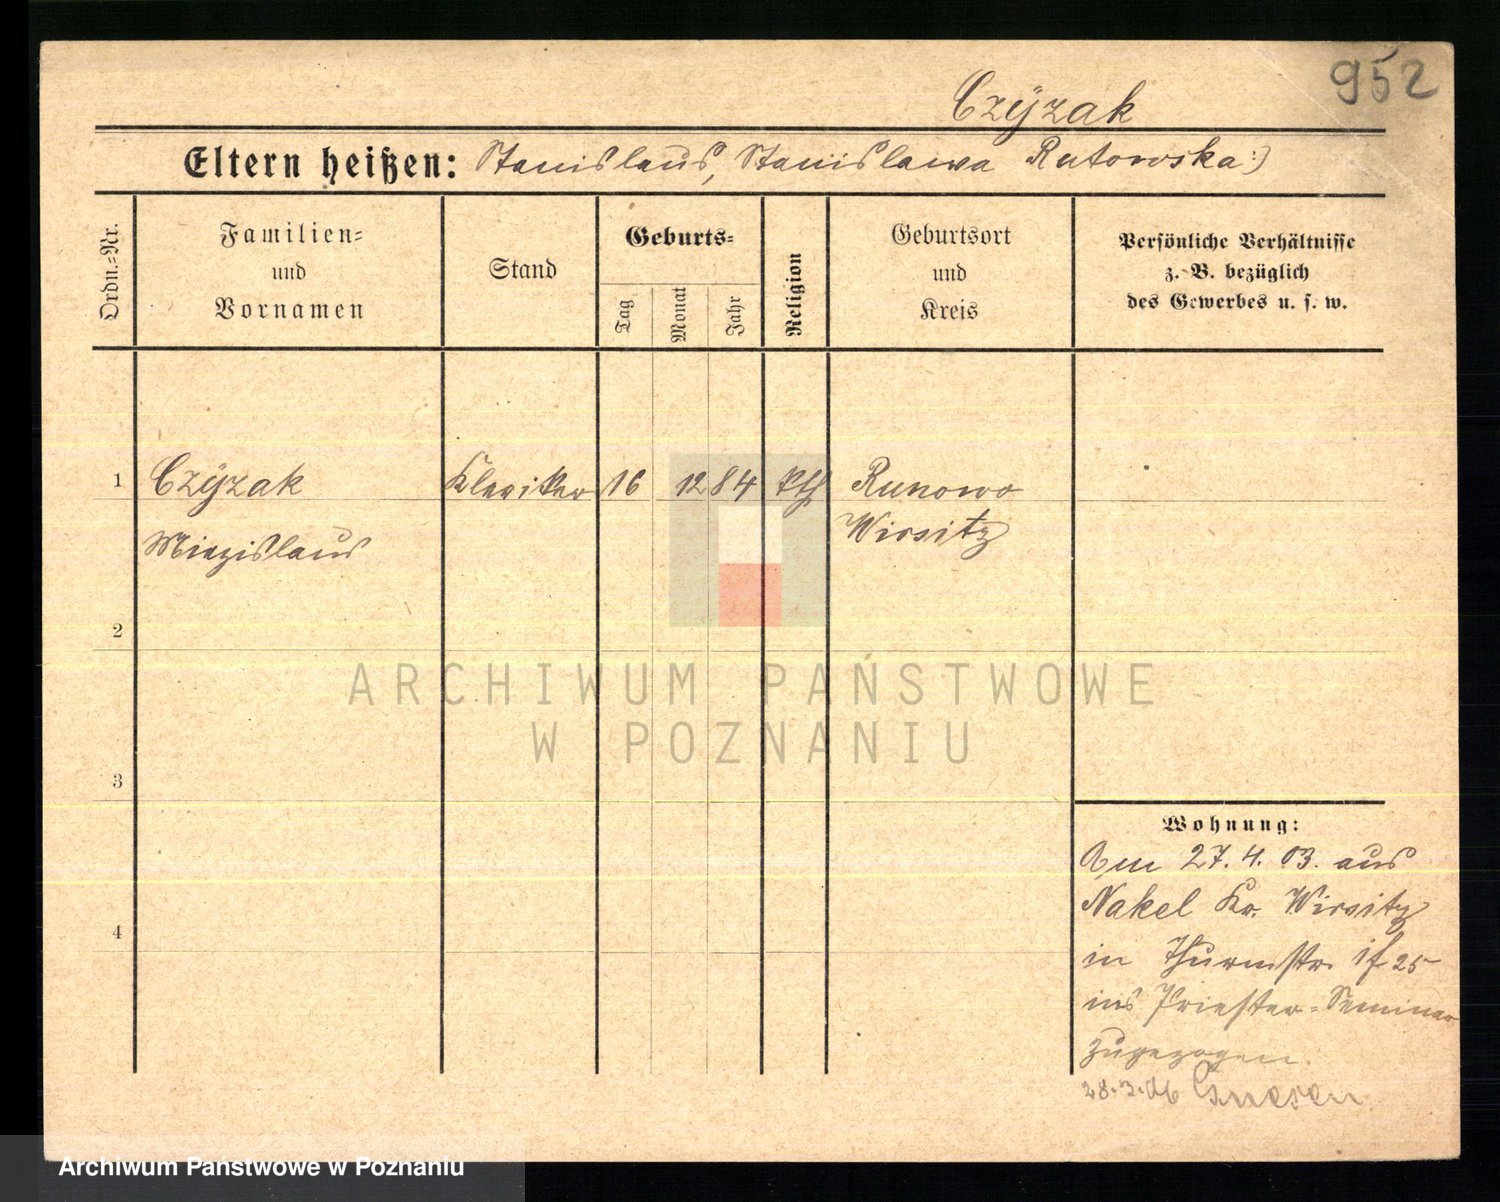 952
Czÿzak
Eltern heißen: Stanislaus, Stanislawa Rutowska:)
Ordn.-Nr.
Familien=
und
Vornamen
Stand
Geburts=
Tag
Monat
Jahr
Religion
Geburtsort
und
Kreis
Persönliche Verhältnisse
z. B. bezüglich
des Gewerbes u. s. w.
1 Czÿzak Kleriker 16 12 84 kth Runowo
Miezislaus Wirsitz
2
3
4
Wohnung:
Am 27.4.03. aus
Nakel Kr. Wirsitz
in Thurmstr. 25
ins Priester=Seminar
zugezogen.
28.3.06 Gnesen
ARCHIWUM PAŃSTWOWE
W POZNANIU
Archiwum Państwowe w Poznaniu